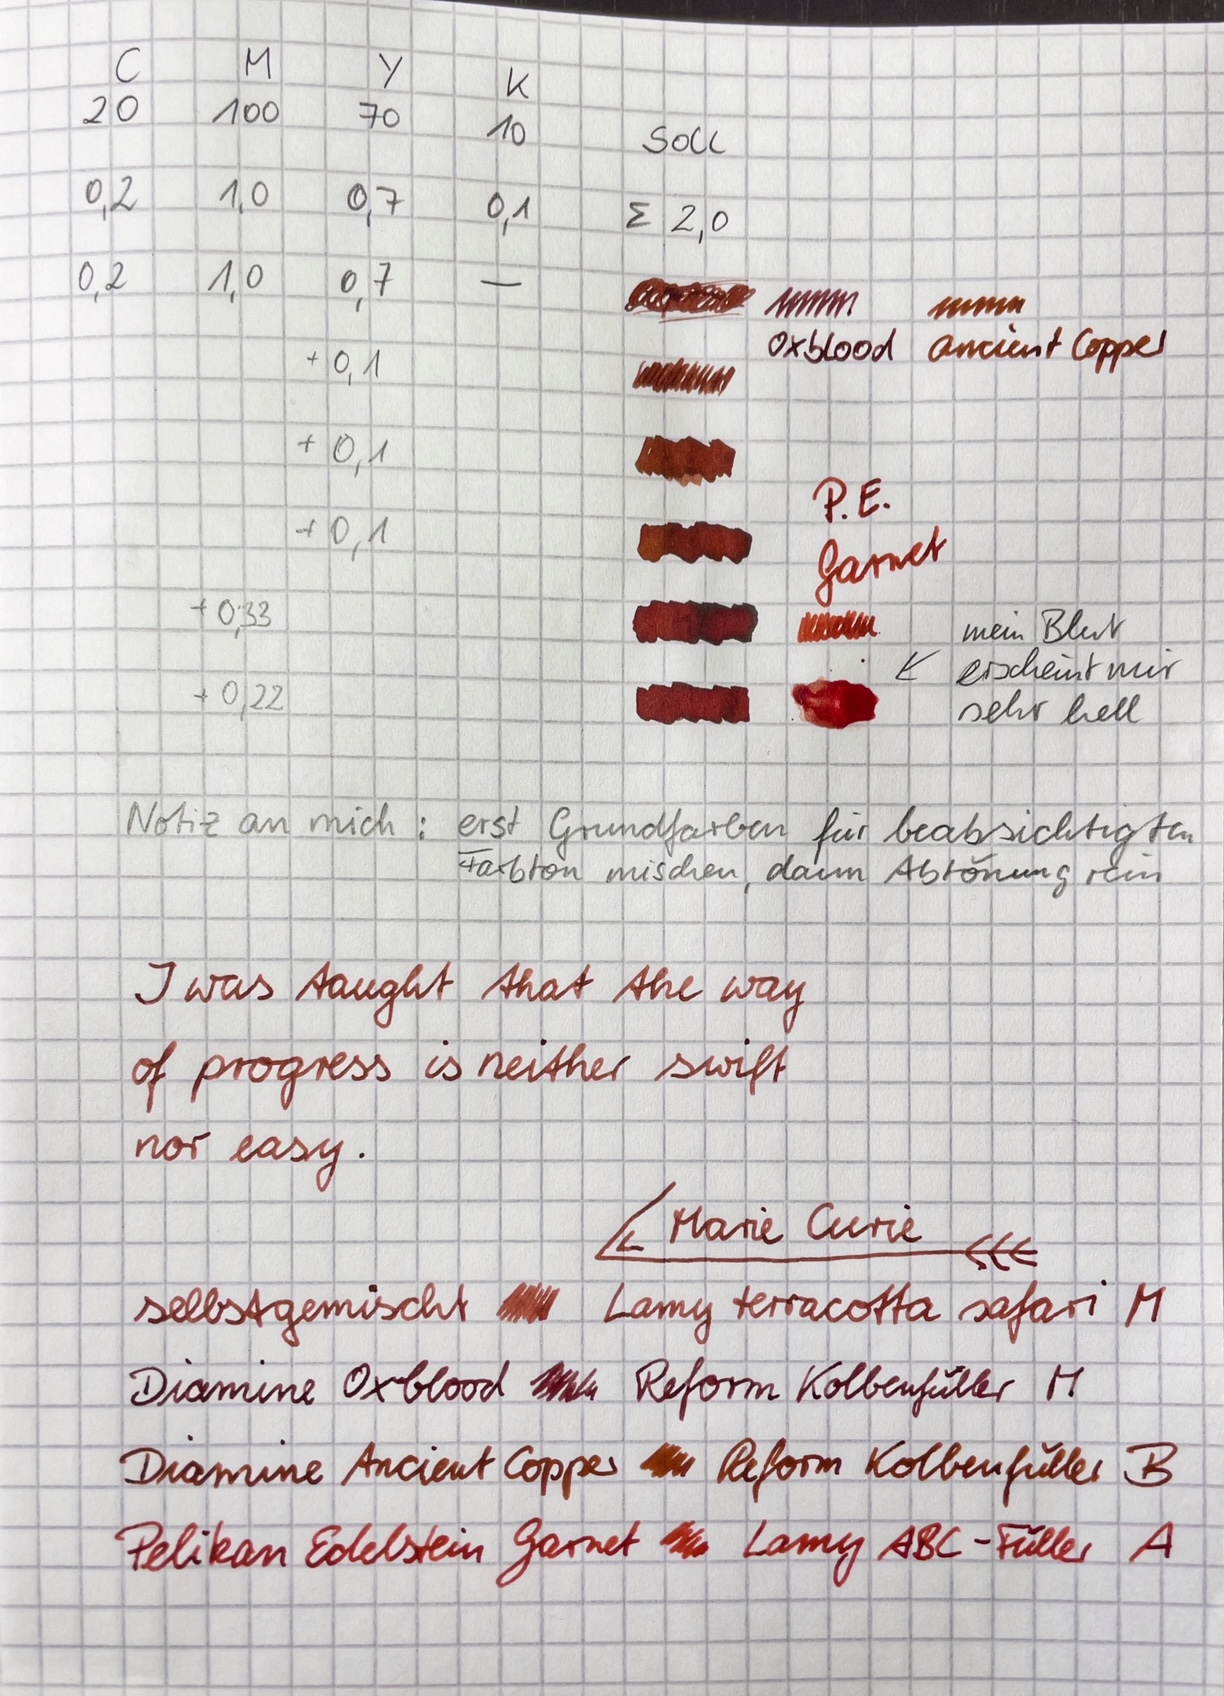 C M Y K
20 100 70 10 Soll
0,2 1,0 0,7 0,1 Σ 2,0
0,2 1,0 0,7 —
Oxblood ancient Copper
+ 0,1
+ 0,1
P.E.
+ 0,1
Garnet
+ 0,33 mein Blut
erscheint mir
+ 0,22 sehr hell
Notiz an mich : erst Grundfarben für beabsichtigten
Farbton mischen, dann Abtönung rein
I was taught that the way
of progress is neither swift
nor easy.
Marie Curie
selbstgemischt Lamy terracotta safari M
Diamine Oxblood Reform Kolbenfüller M
Diamine Ancient Copper Reform Kolbenfüller B
Pelikan Edelstein Garnet Lamy ABC-Füller A